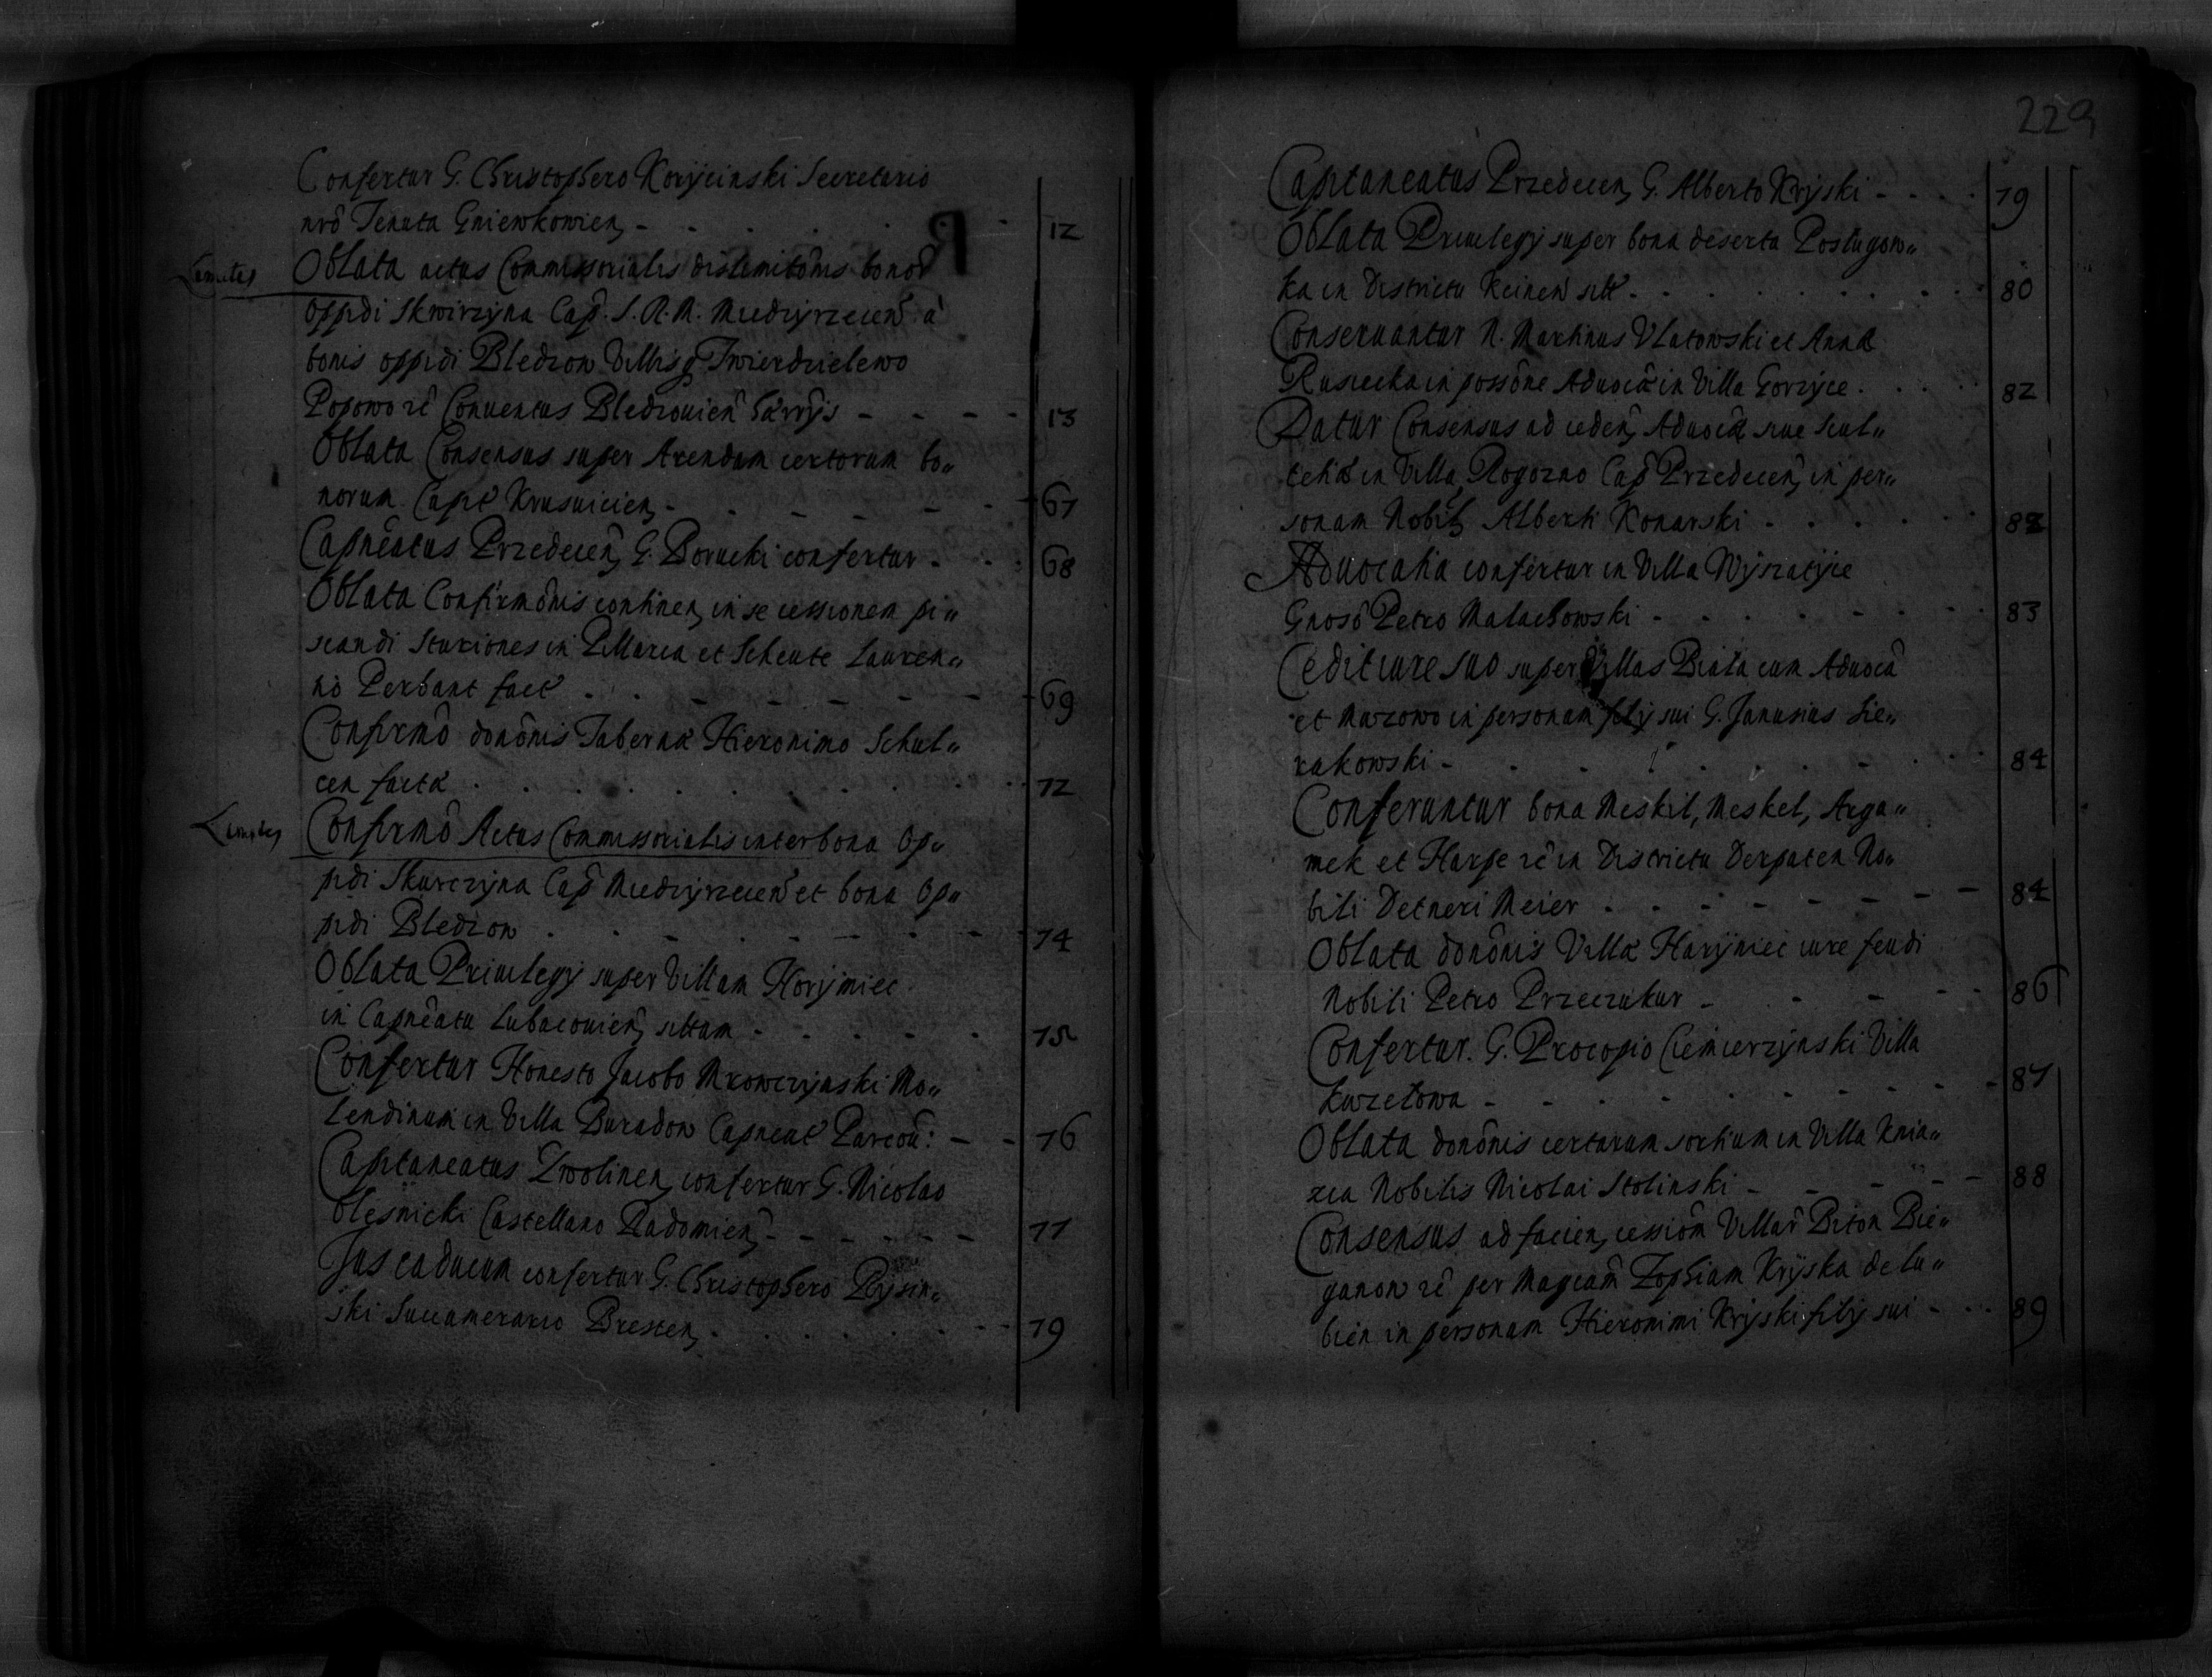 Confertur G. Christophero Koryciński Secretario
nrō Tenuta Gniewkowien, - 12
Limites Oblata actus Commissorialis dislimitōnis bonor
oppidi Skwirzyna Cap. S. R. M. Miedzyrzecen à
bonis oppidi Bledzow Villisq Twierdzielewo
Popowo rē Conventus Bledzouien - 13
Oblata Consensus super Arendam certorum bo„
norum Capt Krusuicien, - 67
Capnēatus Przedecen, G. Borucki confertur - 68
Oblata Confirmōnis continen, in se cessionem pi„
scandi Sturiones in Pillavia et Scheute Lauren„
tio Perbant fact 69
Confirmō donōnis Tabernæ Hieronimo Schul„
cen factæ 72
Limites Confirmō Actus Commissorialis inter bona Op„
pidi Skwrczyna Cap Miedzyrzecen et bona Op„
pidi Bledzow 74
Oblata Priuilegij super Villam Horyiniec
in Capnēatu Lubaczouien, sittam - 75
Confertur Honesto Jacobo Mrowczynski Mo„
lendinum in Villa Buradow Capneat Parcoũ: - 76
Capitaneatus Zwolinen, confertur G. Nicolao
Olesnicki Castellano Radomien, - 77
Jus caducum confertur G. Christophero
ski Succamerario Bresten, - 79
229
Capitaneatus Przedecen, G. Alberto Kryski - 79
Oblata Priuilegij super bona deserta Posługow„
ka in Districtu sitt - 80
Conseruantur N. Martinus Vlatowski et Anna
in possōne Aduocæ in Villa Gorzyce. 82
Datur Consensus ad ceden, Aduocæ siue Scul„
tetiæ in Villa Rogozno Cap Przedecen, in per„
sonam Nobil, Alberti Konarski - 82
Aduocatia confertur in Villa Wyszatyce
Gnosō Petro Małachowski - 83
Cedit iure suo super Villas Biała cum Aduocā
et in personam filij sui G. Janusius Sie„
rakowski - 84
Conferuntur bona Meskil, Meskel, Arga„
mek et Harpe rē in Districtu Derpaten No„
bili Detneri Meier 84
Oblata donōnis Villæ Haryniec iure feudi
Nobili Petro Przeczukur - 86
Confertur. G. Procopio Ciemierzynski Villa
Kurzelowa - 87
Oblata donōnis certarum sortium in Villa Knia„
zia Nobilis Nicolai Stolinski - 88
Consensus ad facien, cessiōm Villar Biton Bie„
ganow rē per Magcam Zophiam Kryska de Lu„
bien in personam Hieronimi Kryski filij sui - 89